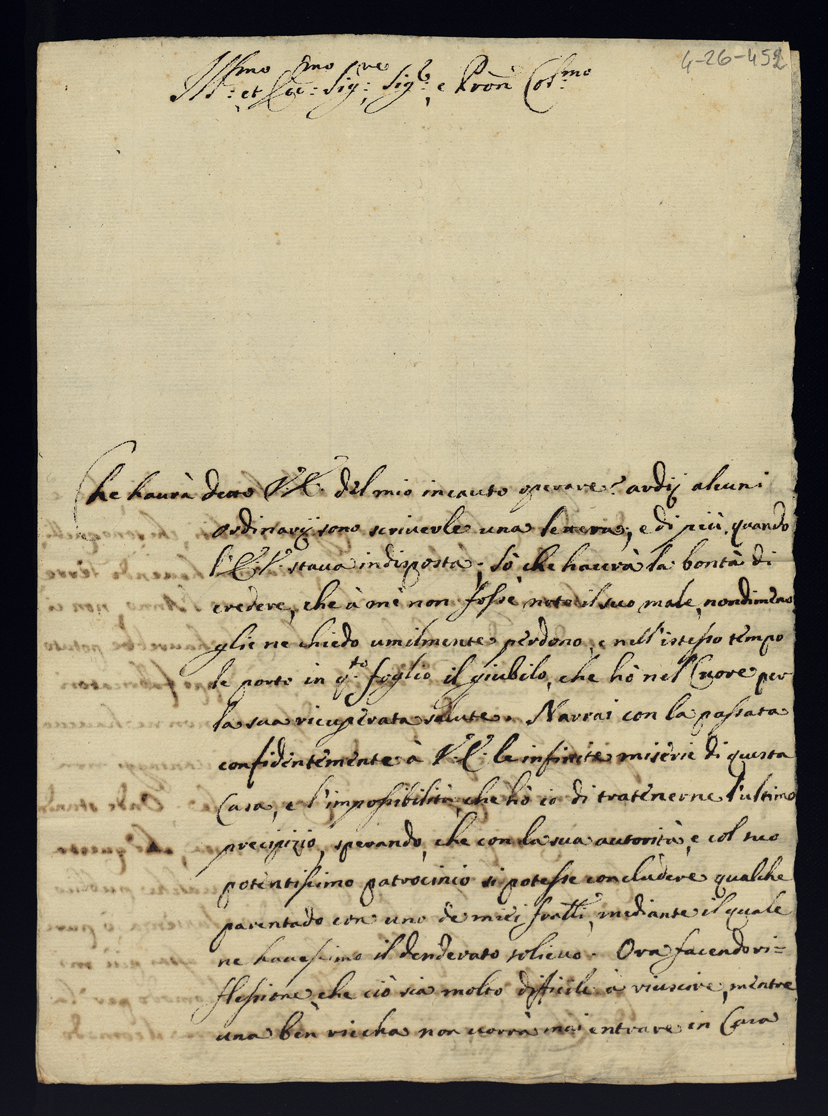 4-26-452
Ill:mo et Ecc:mo Sig:re Sig:r e Pron Col:mo
Che haurà detto V.E. del mio incauto operare? ardij alcuni
ordinarij sono scriverle una lettera, e di più, quando
l'E.V. stava indisposta. Sò che haverà la bontà di
credere, che à mè non fosse noto il suo male, nondimeno
glie ne chiedo umilmente perdono, e nell'istesso tempo
le porto in q.to foglio il giubilo, che hò nel Cuore per
la sua ricuperata salute. Narrai con la passata
confidentemente à V.E. le infinite miserie di questa
Casa, e l'impossibilità, che hò io di tratenerne l'ultimo
precipizio, sperando, che con la sua autorità, e col suo
potentissimo patrocinio si potesse concludere qualche
parentado con uno de miei fratlli, mediante il quale
ne havessimo il desiderato solievo. Ora facendo ri=
flessione, che ciò sia molto difficile à riuscire, mentre
una ben riccha non vorrà mai entrare in Casa